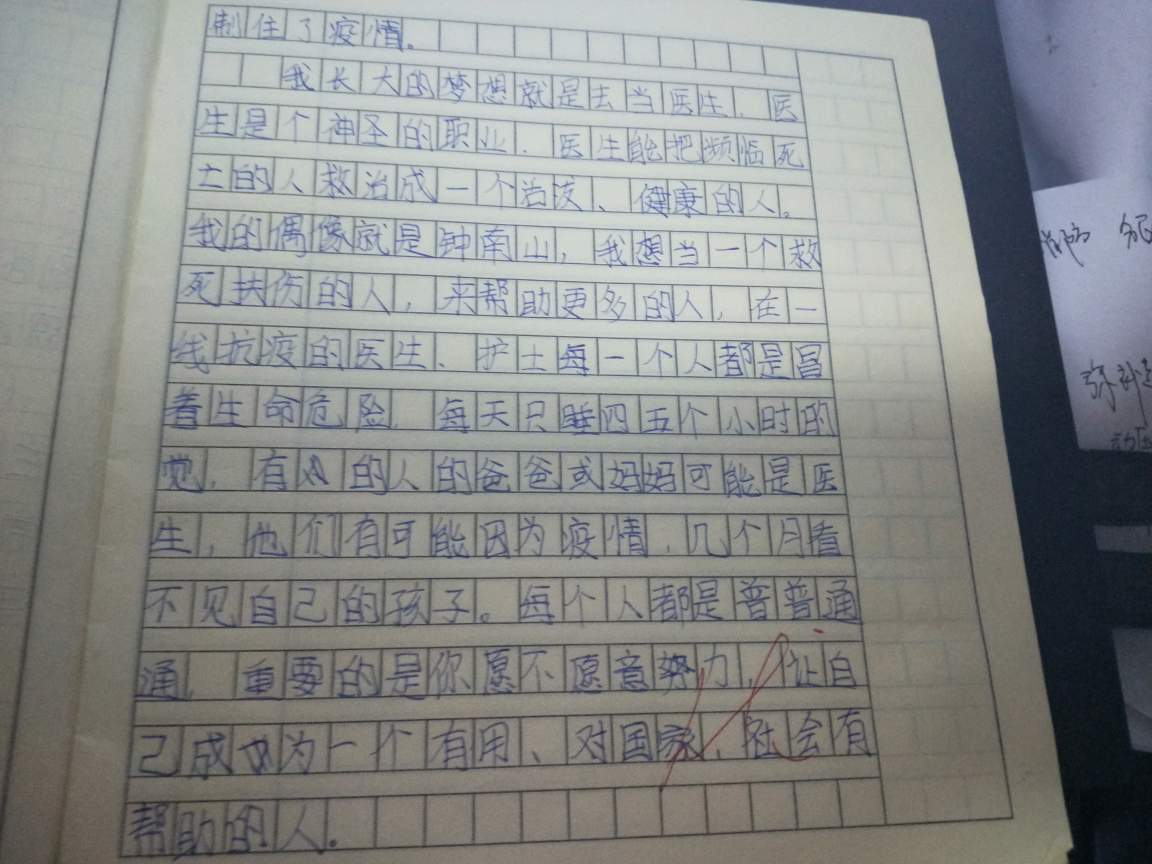 制住了疫情。
我长大的梦想就是去当医生，医
生是个神圣的职业，医生能把频临死
亡的人救治成一个活泼、健康的人。
我的偶像就是钟南山，我想当一个救
死扶伤的人，来帮助更多的人，在一
线抗疫的医生、护士每一个人都是冒
着生命危险，每天只睡四五个小时的
觉，有的人的爸爸或妈妈可能是医
生，他们有可能因为疫情，几个月看
不见自己的孩子。每个人都是普普通
通，重要的是你愿不愿意努力，让自
己成为一个有用、对国家、社会有
帮助的人。